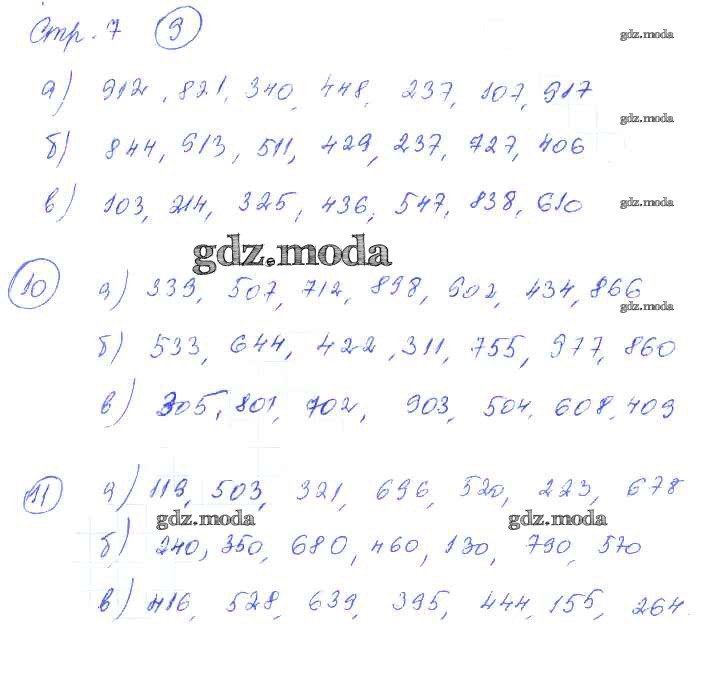 Стр. 7 9
gdz.moda
а) 912, 821, 340, 448, 237, 107, 917
gdz.moda
б) 844, 913, 511, 429, 237, 727, 406
в) 103, 214, 325, 436, 547, 838, 610
gdz.moda
gdz.moda
10 а) 339, 507, 712, 898, 902, 434, 866
gdz.moda
б) 533, 644, 422, 311, 755, 977, 860
в) 305, 801, 702, 903, 504, 608, 409
11 а) 119, 503, 321, 696, 520, 223, 678
gdz.moda gdz.moda
б) 240, 350, 680, 460, 130, 790, 570
в) 416, 528, 639, 395, 444, 155, 264.